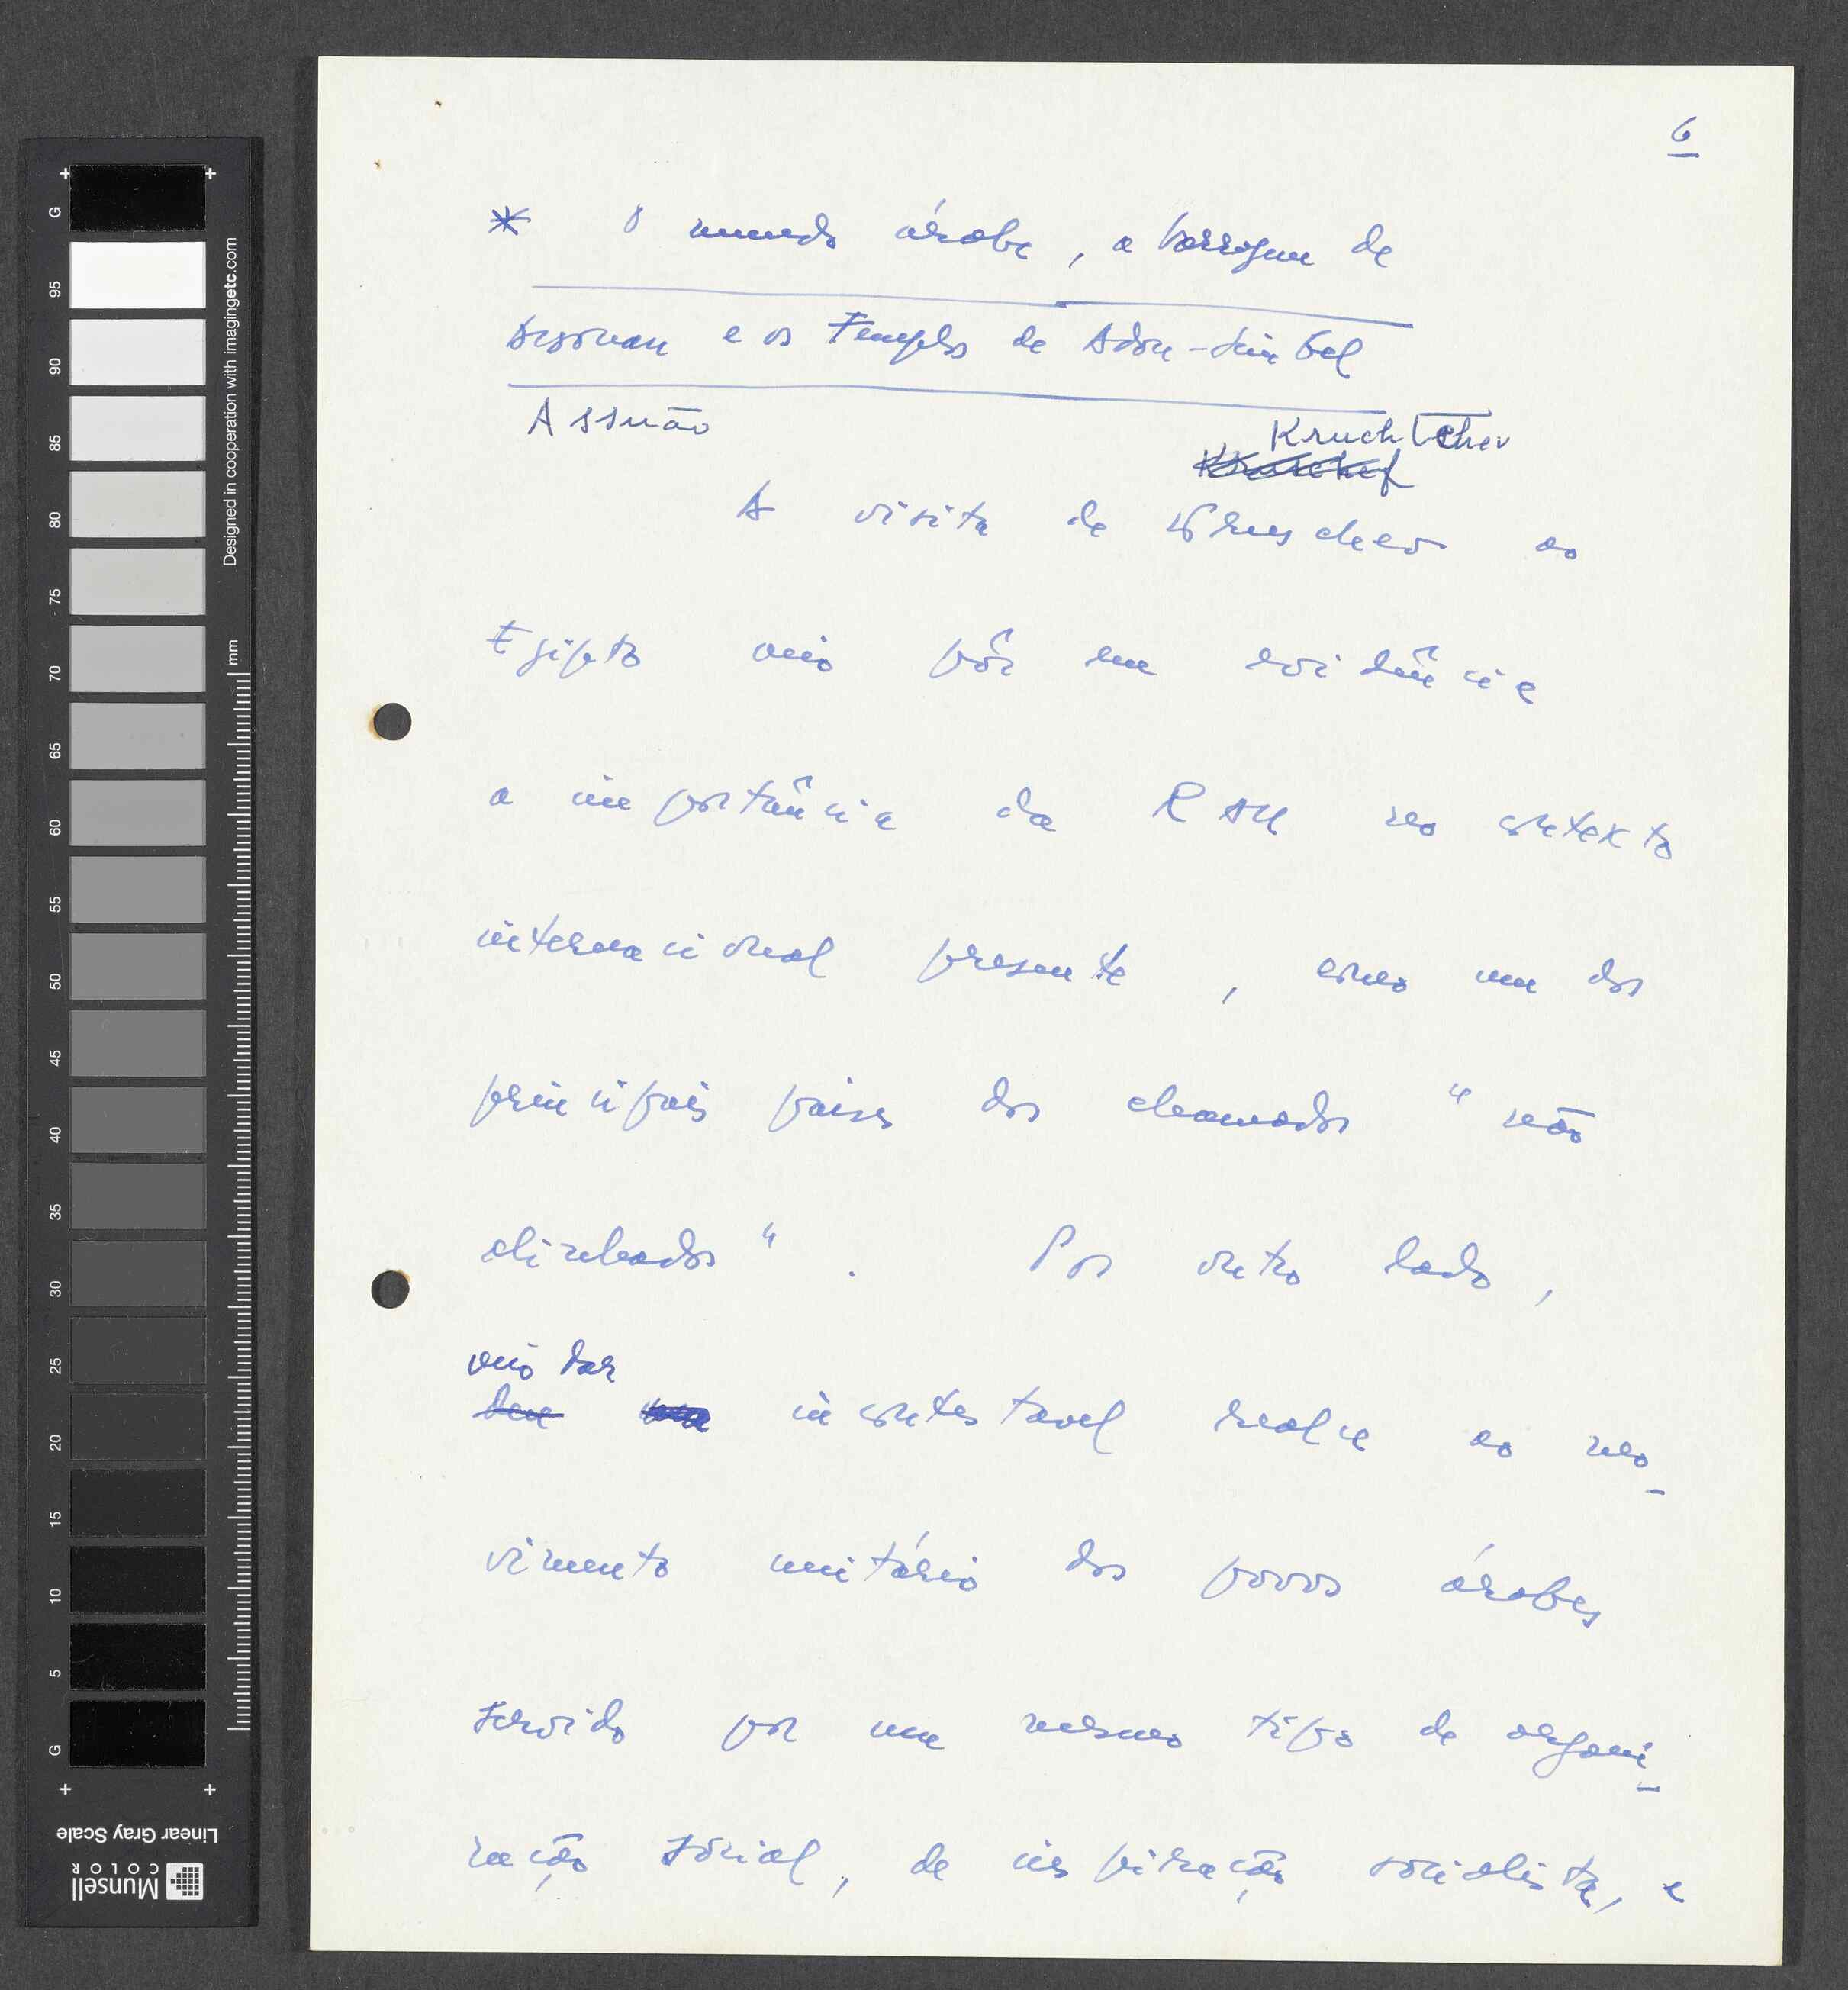 6
* O mundo árabe, a barragem de
Assouan e os Templos de Abou-Simbel
Assuão
Kruchtchev
Kruschef
A visita de Khruschev ao
Egipto veio pôr em evidência
a importância da RAU no contexto
internacional presente, como um dos
principais paises dos chamados "não
alinhados". Por outro lado,
veio dar
deu incontestavel realce ao mo-
vimento unitário dos povos árabes
servido por um mesmo tipo de organi-
zação social, de inspiração socialista, e
G
95
90
85
80
75
70
65
60
55
50
45
40
35
30
25
20
15
10
5
G
mm
Designed in cooperation with imagingetc.com
Linear Gray Scale
Munsell
COLOR